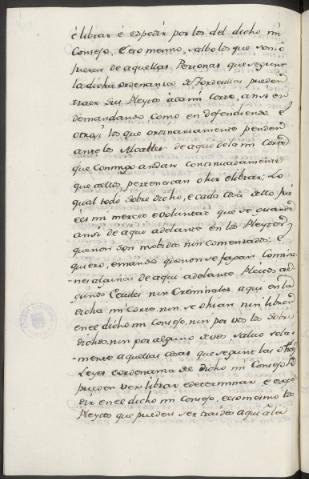 é librar é espedir por los del dicho mi
Consejo, é eso mesmo, salvo los que son ó
fueren de aquellas Personas que segund
la dicha ordenanza de Tordecillas pueden
traer sus Pleytos à cá mi Corte, ansi en
demandando como en defendiendo é
otrosi los que ordinariamente penden
ante los Alcaldes de aqui de la mi Corte
que conmigo andan continuadamente
que à ellos pertenescan oir é librar. Lo
qual todo sobre dicho, é cada cosa dello, por
ées mi merced é voluntad que se guarde
ansi de aqui adelante en los Pleytos
que non son mobidos nin comenzados; é
quiero, é mando que non se fagan Comisio-
nes algunas de aqui adelante Pleitos al-
gunos Ceviles nin Creminales aqui en la
dicha mi Corte, nin se ohian nin libren
en el dicho mi Consejo, nin por vos los sobre
dichos, nin por alguno de vos, salvo sola-
mente aquellas cosas que segund las otras
Leyes é ordenanzas de dicho mi Consejo se
pueden ver é librar é determinar é espe-
dir en el dicho mi Consejo, é eso mismo los
Pleytos que pueden ser traidos aqui à la